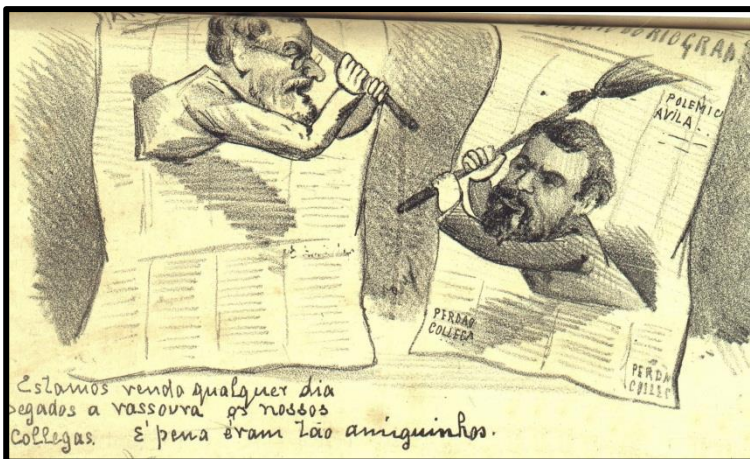 DO RIOGRAN
POLEMIC
AVILA.
PERDÃO
COLLEGA
PERDÃ
COLLEC
Estamos vendo qualquer dia
pegados a vassoura os nossos
Collegas. E' pena éram tão amiguinhos.